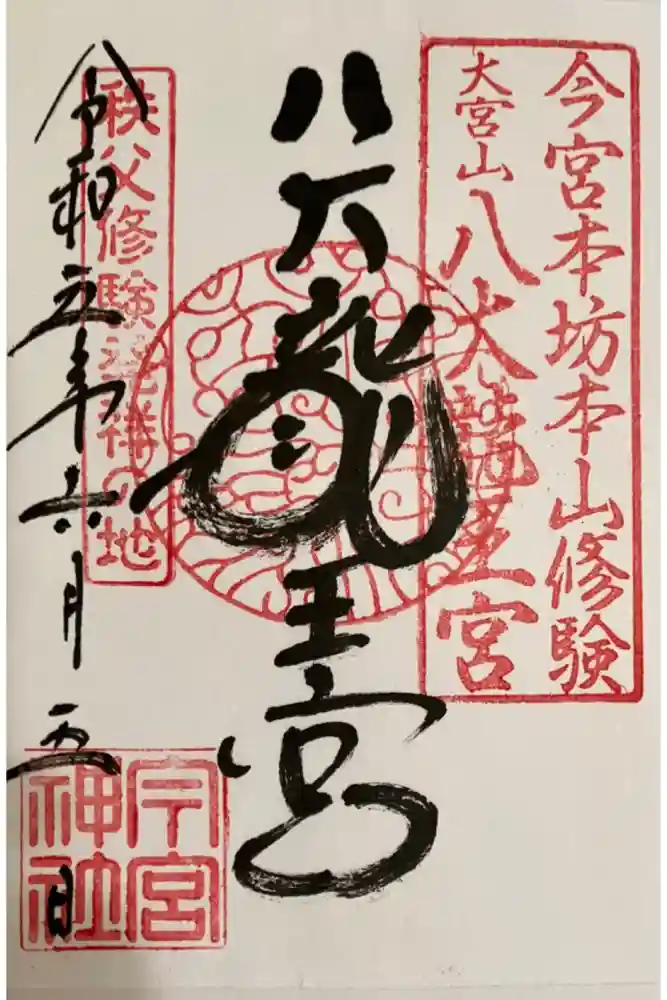 今宮本坊本山修験
大宮山八大龍王宮
八大龍王宮
秩父修験発祥の地
令和五年六月五日
今宮
神社